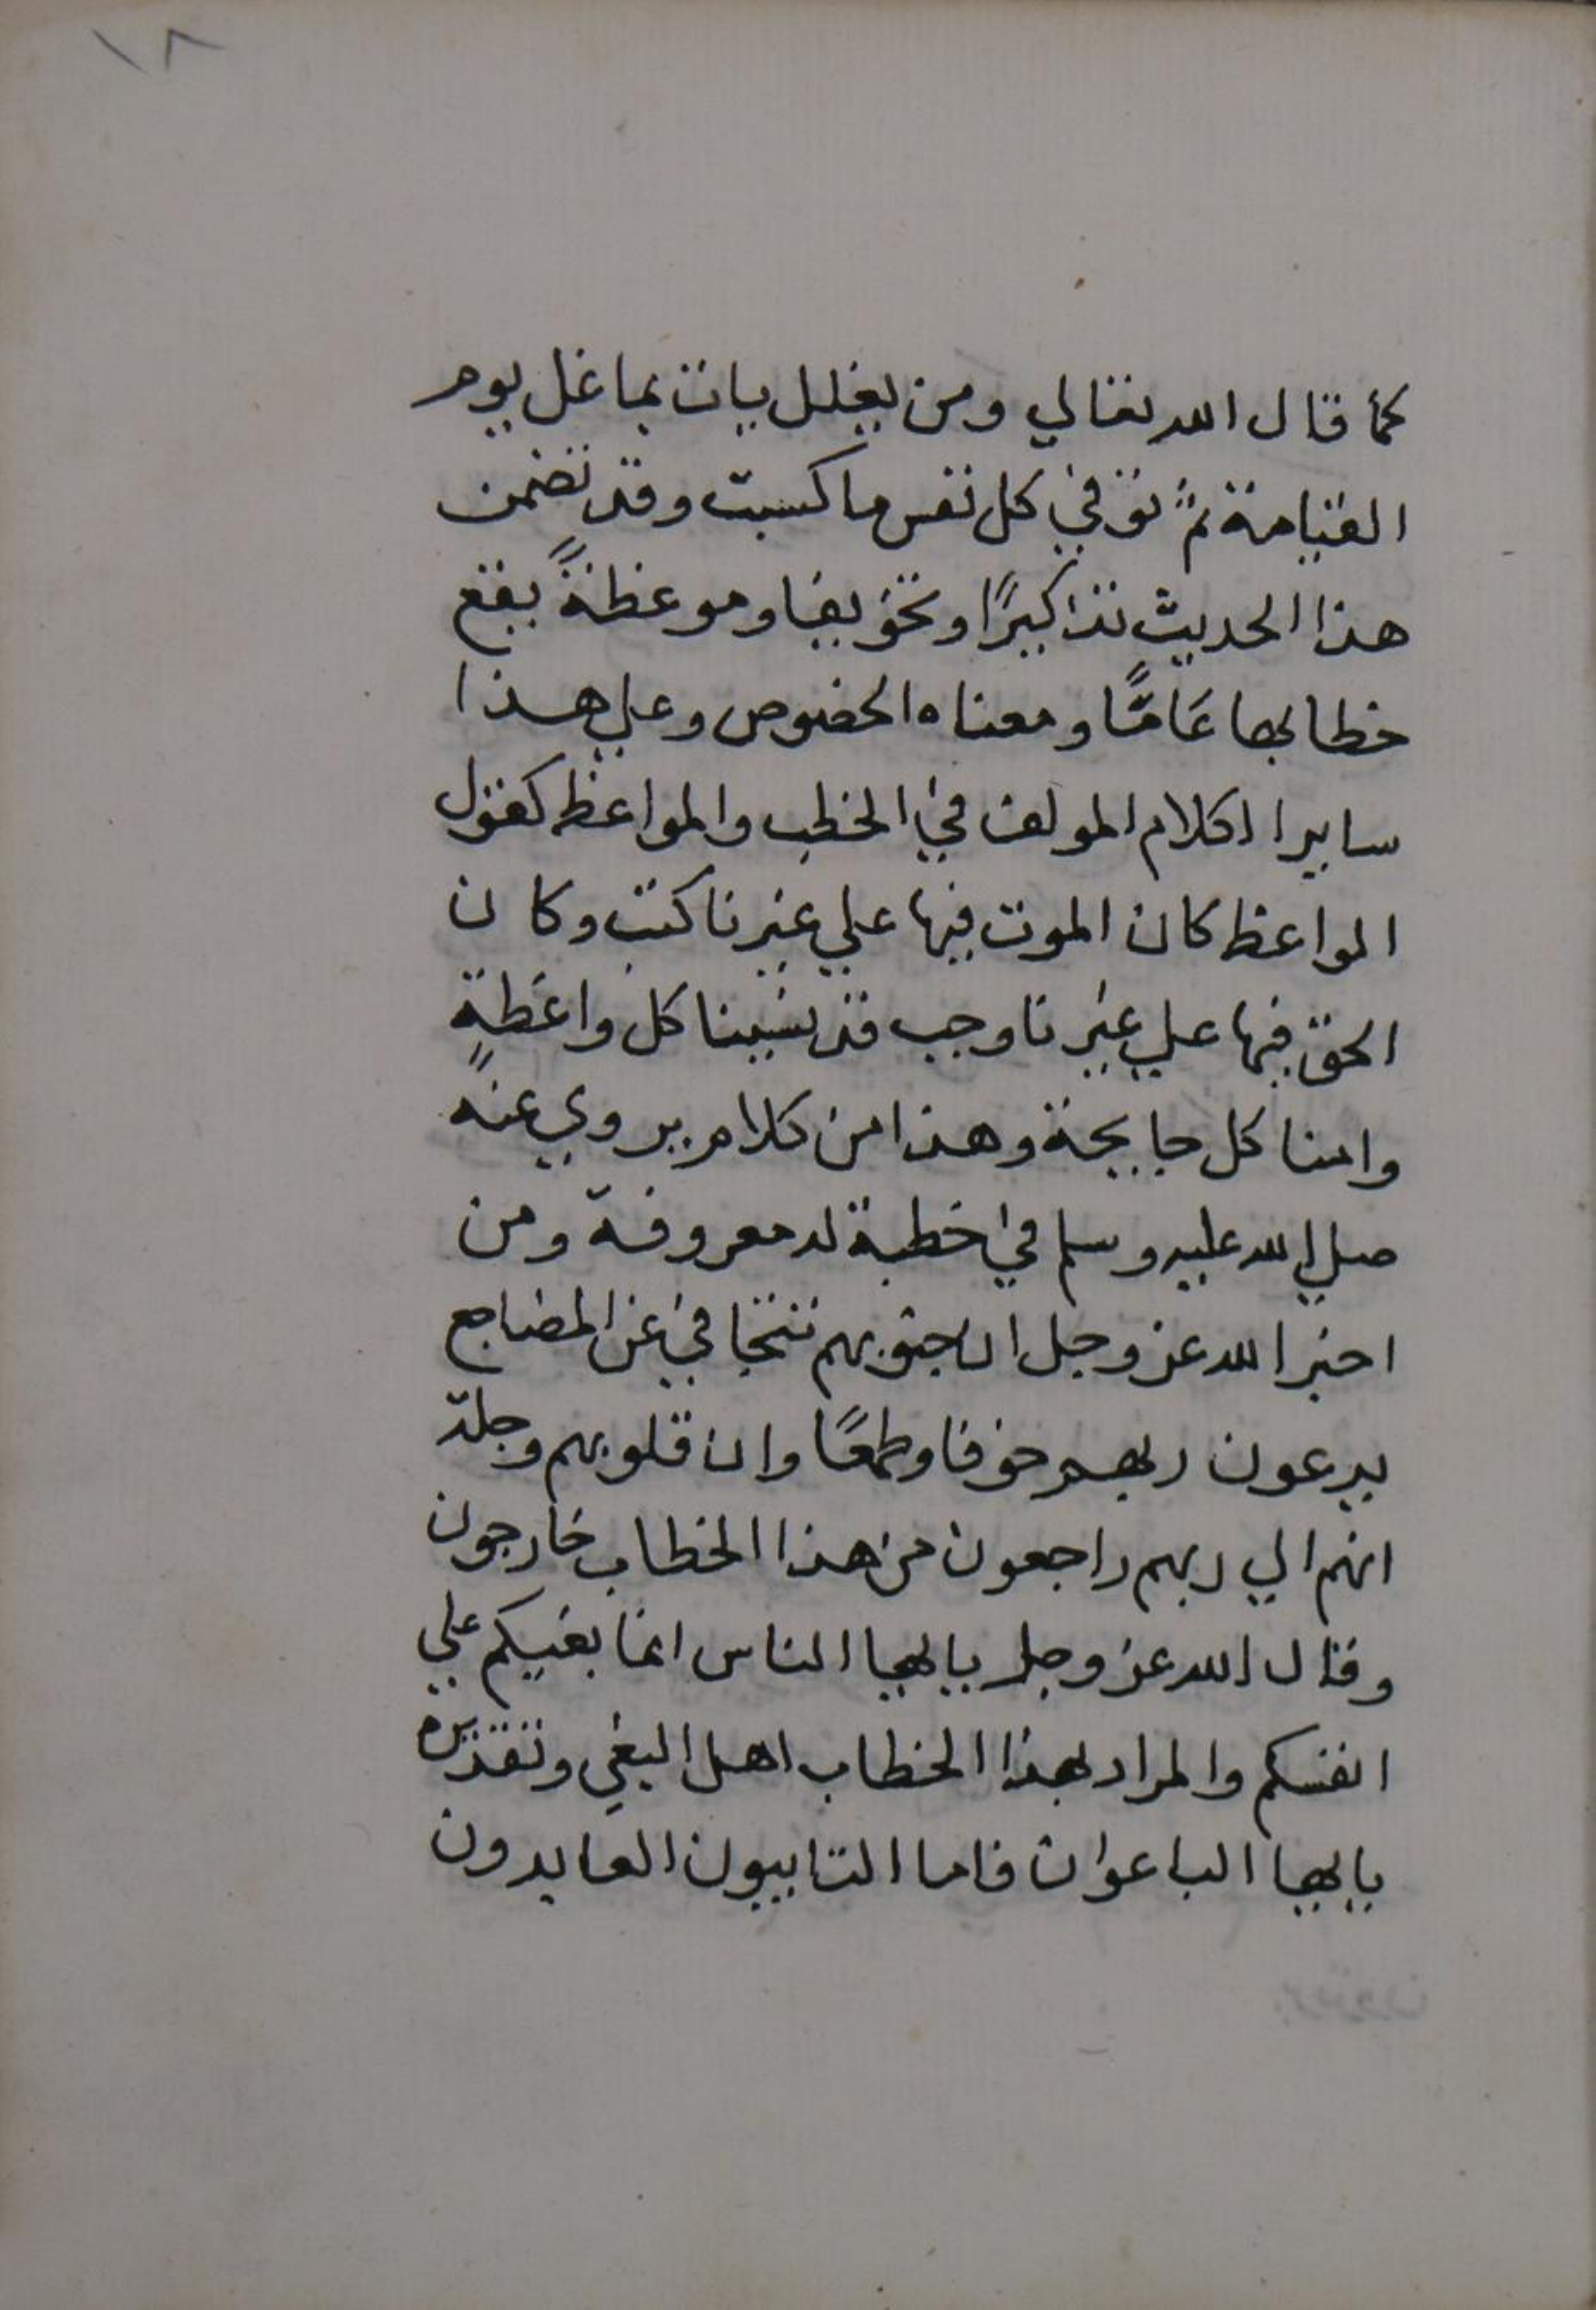 ١٨
كما قال الله تعالي ومن يغلل يات بما غل يوم
القيامة ثم توفي كل نفس ما كسبت وقد تضمن
هذا الحديث تذاكيرًا وتخويفا وموعظةً يقع
خطابها عَامًّا ومعناه الخصوص وعلي هذا
ساير الكلام المولف في الخطب والمواعظ كقول
المواعظ كان الموت فيها علي غيرنا كتب وكان
الحق فيها علي غيرنا وجب قد نسينا كل واعظةٍ
وامنا كل جايحة وهذا من كلام يروي عنه
صلي الله عليه وسلم في خطبة له معروفة ومن
اخبر الله عز وجل ان جنوبهم تتجافي عن المضاجع
يدعون ربهم خوفا وطمعًا وان قلوبهم وجلة
انهم الي ربهم راجعون من هذا الخطاب خارجون
وقال الله عز وجل يايها الناس انما بغيكم علي
انفسكم والمراد بهذا الخطاب اهل البغي وتقديره
يايها الباعوان فاما التاييون العابدون